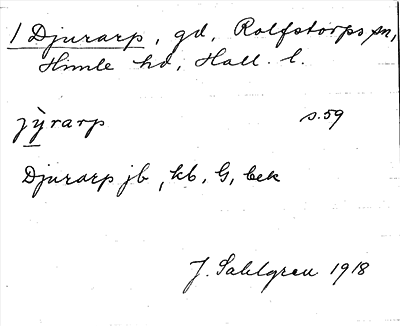 1 Djurarp, gd, Rolfstorps sn,
Himle hd, Hall. l.
jỳrarp s.59
Djurarp jb, kb, G, bek
J. Sahlgren 1918